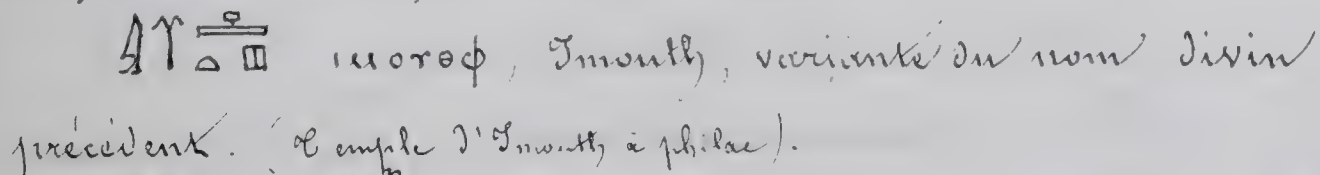 ιμογθφ, Imouth, variante du nom divin
précédent. (Temple d'Imouth à philae).